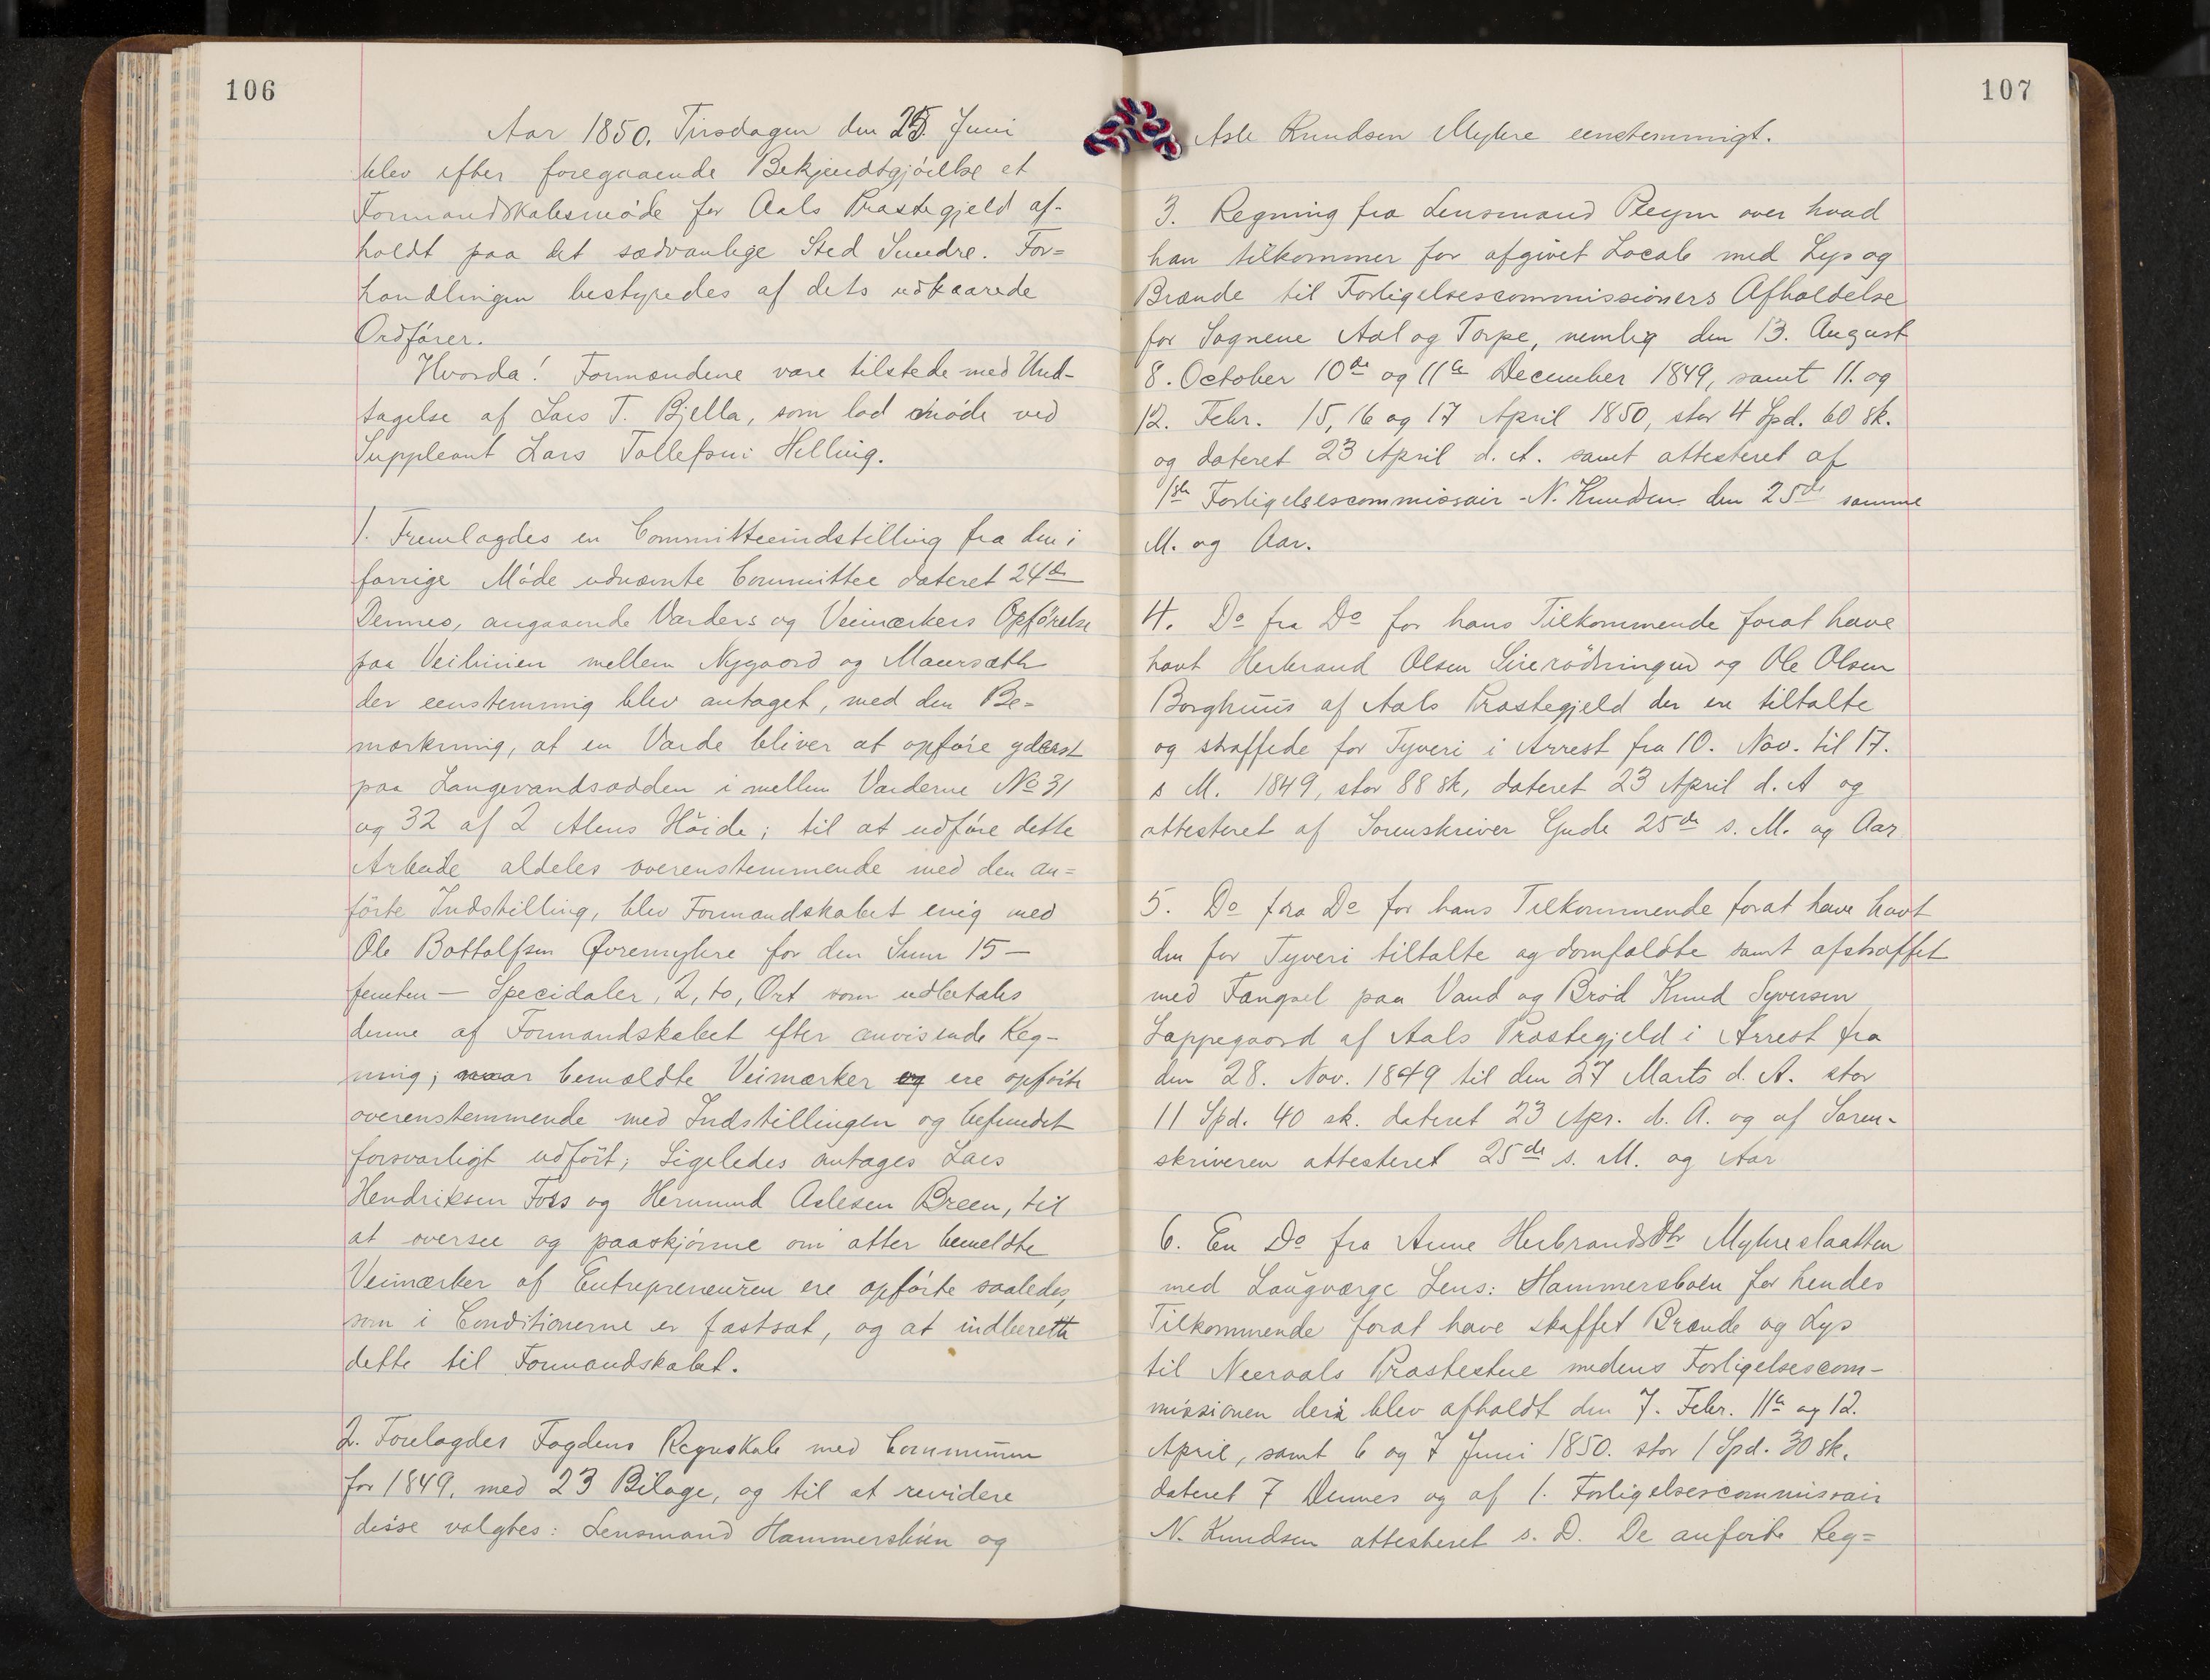 106
Aar 1850. Tirsdagen den 25. Juni
blev efter foregaaende Bekjendtgjörelse et
Formandskabsmöde for Aals Præstegjeld af-
holdt paa det sædvanlige Sted Sundre. For=
handlingen bestyredes af dets udkaarede
Ordförer.
Hvorda! Formændene vare tilstede med Und-
tagelse af Lars T. Bjella, som lod möde ved
Suppleant Lars Tollefsen Helling.
1. Fremlagdes en Committeeindstilling fra den i
forrige Möde udnævnte Committee dateret 24de
Dennes, angaaende Varders og Veimærkers Opförelse
paa Veilinien mellem Nygaard og Maursæth
der eenstemmig blev antaget, med den Be=
mærkning, at en Varde bliver at opföre yderst
paa Langevandsodden i mellem Varderne No 31
og 32 af 2 Alens Höide; til at udföre dette
Arbeide aldeles overenstemmende med den an=
förte Indstilling, blev Formandskabet enig med
Ole Bottolfsen Øvremyhre for den Sum 15 —
femten — Specidaler, 2, to, Ort som udbetales
denne af Formandskabet efter anvisende Reg-
ning; naar bemældte Veimærker og ere opförte
overenstemmende med Indstillingen og befundet
forsvarligt udfört; Ligeledes antages Lars
Hendriksen Foss og Hermund Aslesen Breen, til
at oversee og paaskjönne om atter bemeldte
Veimærker af Entrepreneuren ere opförte saaledes,
som i Conditionerne er fastsat, og at indberette
dette til Formandskabet.
2. Forelagdes Fogdens Regnskab med Communen
for 1849, med 23 Bilage, og til at revidere
disse valgtes: Lensmand Hammersböen og
107
Asle Knudsen Myhre eenstemmigt.
3. Regning fra Lensmand Pleym over hvad
han tilkommer for afgivet Locale med Lys og
Brænde til Forligelsescommissioners Afholdelse
for Sognene Aal og Torpe, nemlig den 13. August
8. October 10de og 11te December 1849, samt 11. og
12. Febr. 15, 16 og 17 April 1850, stor 4 Spd. 60 sk.
og dateret 23 April d. A. samt attesteret af
1ste Forligelsescommissair N. Knudsen den 25de samme
M. og Aar.
4. Do fra Do for hans Tilkommende forat have
havt Herbrand Olsen og Ole Olsen
Borghuus af Aals Præstegjeld der ere tiltalte
og straffede for Tyveri i Arrest fra 10. Nov. til 17.
s M. 1849, stor 88 sk, dateret 23 April d. A og
attesteret af Sorenskriver Gude 25de s. M. og Aar
5. Do fra Do for hans Tilkommende forat have havt
den for Tyveri tiltalte og domfældte samt afstraffet
med Fængsel paa Vand og Bröd Knud Syversen
Lappegaard af Aals Præstegjeld i Arrest fra
den 28. Nov. 1849 til den 27 Marts d. A. stor
11 Spd. 40 sk. dateret 23 Apr. d. A. og af Soren-
skriveren attesteret 25de s. M. og Aar
6. En Do fra Anne HerbrandsDtr Myhreslaatten
med Laugværge Lens: Hammersboen for hendes
Tilkommende forat have skaffet Brænde og Lys
til Neeraals Præstestue medens Forligelsescom-
missionen deri blev afholdt den 7. Febr. 11te og 12.
April, samt 6 og 7 Juni 1850. stor 1 Spd. 30 sk.
dateret 7 Dennes og af 1. Forligelsescommissair
N. Knudsen attesteret s. D. De anförte Reg=